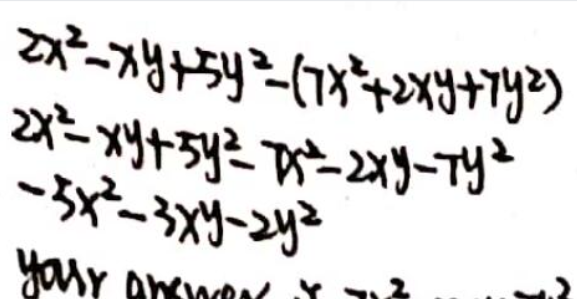 2x²-xy+5y²-(7x²+2xy+7y²)
2x²-xy+5y²-7x²-2xy-7y²
-5x²-3xy-2y²
your answer